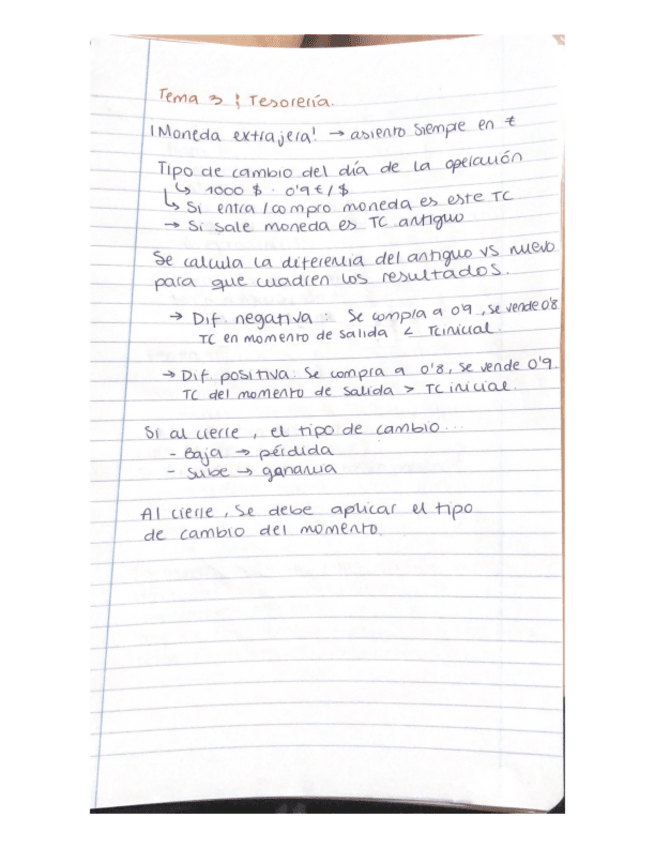 Tema 3 : Tesorería.
¡Moneda extrajera! → asiento siempre en €
Tipo de cambio del día de la operación
↳ 1000 $ · 0'9 € / $
↳ Si entra / compro moneda es este TC
→ Si sale moneda es TC antiguo
Se calcula la diferencia del antiguo vs nuevo
para que cuadren los resultados.
→ Dif. negativa : Se compra a 0'9 , se vende 0'8
TC en momento de salida < TC inicial.
→ Dif. positiva: Se compra a 0'8, se vende 0'9.
TC del momento de salida > TC inicial.
Si al cierre , el tipo de cambio ...
- Baja → pérdida
- Sube → ganancia
Al cierre, se debe aplicar el tipo
de cambio del momento.